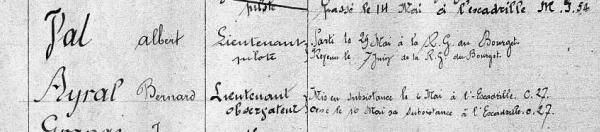 pilote passé le 14 Mai à l'escadrille M.S.54
Val Albert Lieutenant Parti le 29 Mai à la R.G. du Bourget
pilote Rejoint le 7 Juin de la R.G. du Bourget
Ayral Bernard Lieutenant Mis en subsistance le 6 Mai à l'Escadrille C.27.
observateur le 10 Mai sa subsistance à l'Escadrille C.27.